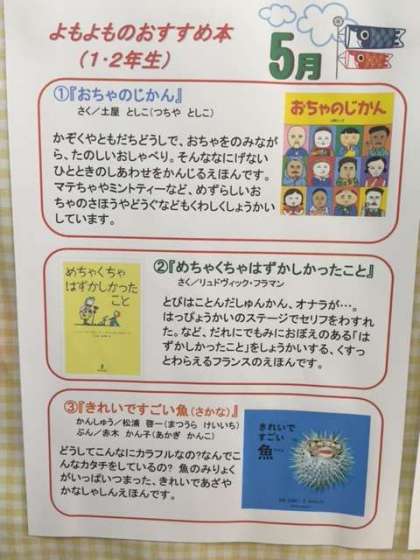 よもよものおすすめ本
(1・2年生)
5月
①『おちゃのじかん』
さく／土屋 としこ(つちや としこ)
かぞくやともだちどうしで、おちゃをのみなが
ら、たのしいおしゃべり。そんななにげない
ひとときのしあわせをかんじるえほんです。
マテちゃやミントティーなど、めずらしいお
ちゃのさほうやどうぐなどもくわしくしょうかい
しています。
おちゃのじかん
めちゃくちゃ
はずかしかった
こと
②『めちゃくちゃはずかしかったこと』
さく／リュドヴィック・フラマン
とびはことんだしゅんかん、オナラが…。
はっぴょうかいのステージでセリフをわすれ
た。など、だれにでもみにおぼえのある「は
ずかしかったこと」をしょうかいする、くすっ
とわらえるフランスのえほんです。
③『きれいですごい魚(さかな)』
かんしゅう／松浦 啓一(まつうら けいいち)
ぶん／赤木 かん子(あかぎ かんこ)
どうしてこんなにカラフルなの?なんでこ
んなカタチをしているの? 魚のみりょく
がいっぱいつまった、きれいであざや
かなしゃしんえほんです。
きれいで
すごい
魚